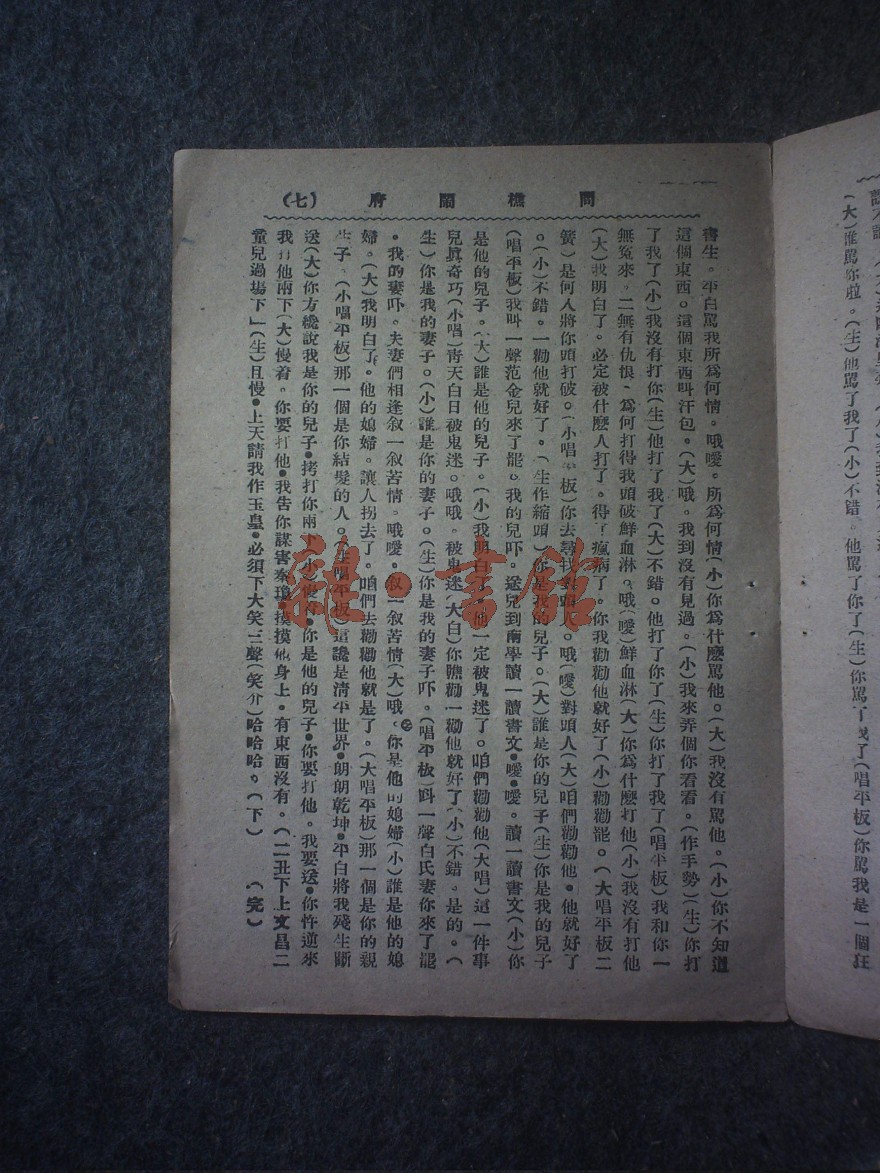 (大)誰罵你啦。(生)他罵了我了(小)不錯。他罵了你了(生)你罵了我了(唱平板)你罵我是一個狂
問樵鬧府 (七)
書生。平白罵我所爲何情。哦噯。所爲何情(小)你爲什麼罵他。(大)我沒有罵他。(小)你不知道
這個東西。這個東西叫汗包。(大)哦。我到沒有見過。(小)我來弄個你看看。(作手勢)(生)你打
了我了(小)我沒有打你(生)他打了我了(大)不錯。他打了你了(生)你打了我了(唱平板)我和你一
無冤來。二無有仇恨、爲何打得我頭破鮮血淋。哦(噯)鮮血淋(大)你爲什麼打他(小)我沒有打他
(大)我明白了。必定被什麼人打了。得了瘋病了。你我勸勸他就好了(小)勸勸罷。(大唱平板二
簧)是何人將你頭打破。(小唱平板)你去尋找對頭人。哦(噯)對頭人(大)咱們勸勸他。他就好了
。(小)不錯。一勸他就好了。(生作縮頭)你是我的兒子。(大)誰是你的兒子(生)你是我的兒子
(唱平板)我叫一聲范金兒來了罷。我的兒吓。送兒到南學讀一讀書文●噯●噯。讀一讀書文(小)你
是他的兒子。(大)誰是他的兒子。(小)我明白了。他一定被鬼迷了。咱們勸勸他(大唱)這一件事
兒眞奇巧(小唱)靑天白日被鬼迷。哦哦。被鬼迷(大白)你瞧勸一勸他就好了(小)不錯。是的。(
生)你是我的妻子。(小)誰是你的妻子。(生)你是我的妻子吓。(唱平板)叫一聲白氏妻你來了罷
。我的妻吓。夫妻們相逢叙一叙苦情。哦噯。叙一叙苦情(大)哦。你是他的媳婦(小)誰是他的媳
婦。(大)我明白了。他的媳婦。讓人拐去了。咱們去勸勸他就是了。(大唱平板)那一個是你的親
生子。(小唱平板)那一個是你結髮的人。(生唱平板)這讒是淸平世界●朗朗乾坤●平白將我殘生斷
送(大)你方纔說我是你的兒子●拷打你兩下(小)使得●你是他的兒子●你要打他。我要送●你忤逆來
我打他兩下(大)慢着。你要打他●我告你謀害秦瓊●摸摸他身上。有東西沒有。(二丑下上文昌二
童兒過塲下」(生)且慢●上天請我作玉皇●必須下大笑三聲(笑介)哈哈哈。(下) (完)
雜·書館